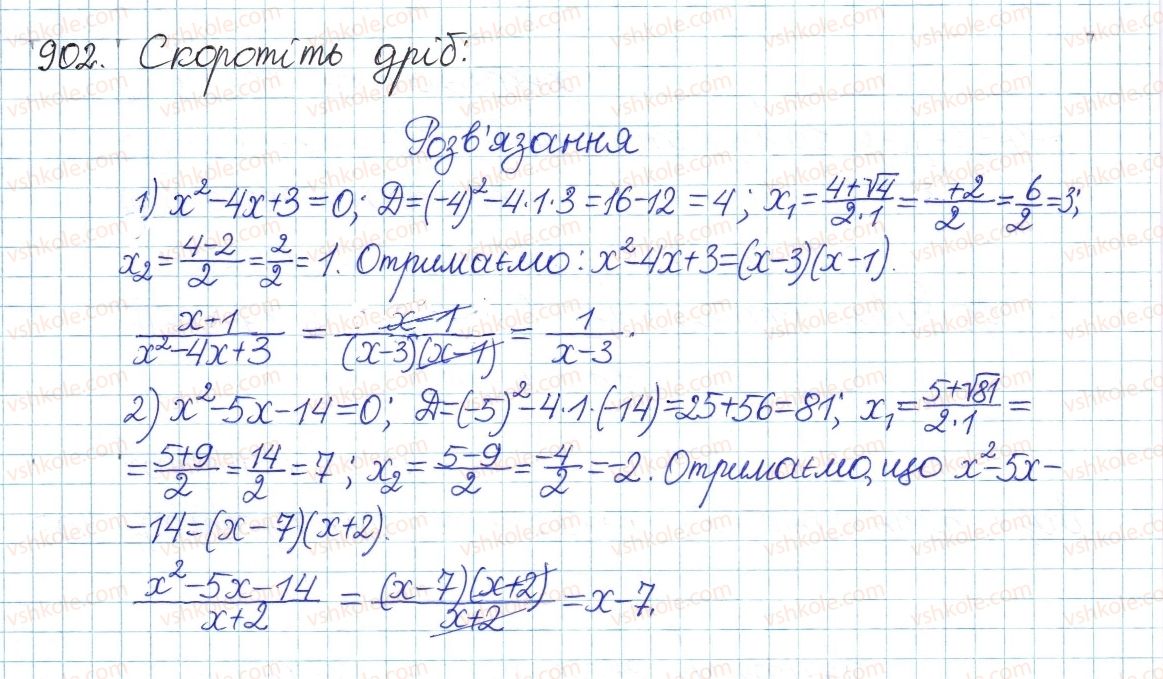 902. Скоротіть дріб:
Розв'язання
1) x²-4x+3=0; D=(-4)²-4·1·3=16-12=4; x₁=(4+√4)/(2·1)=(+2)/2=6/2=3;
x₂=(4-2)/2=2/2=1. Отримаємо: x²-4x+3=(x-3)(x-1).
(x-1)/(x²-4x+3) = (x-1)/((x-3)(x-1)) = 1/(x-3).
2) x²-5x-14=0; D=(-5)²-4·1·(-14)=25+56=81; x₁=(5+√81)/(2·1)=
=(5+9)/2=14/2=7; x₂=(5-9)/2=(-4)/2=-2. Отримаємо, що x²-5x-
-14=(x-7)(x+2).
(x²-5x-14)/(x+2) = ((x-7)(x+2))/(x+2) = x-7.